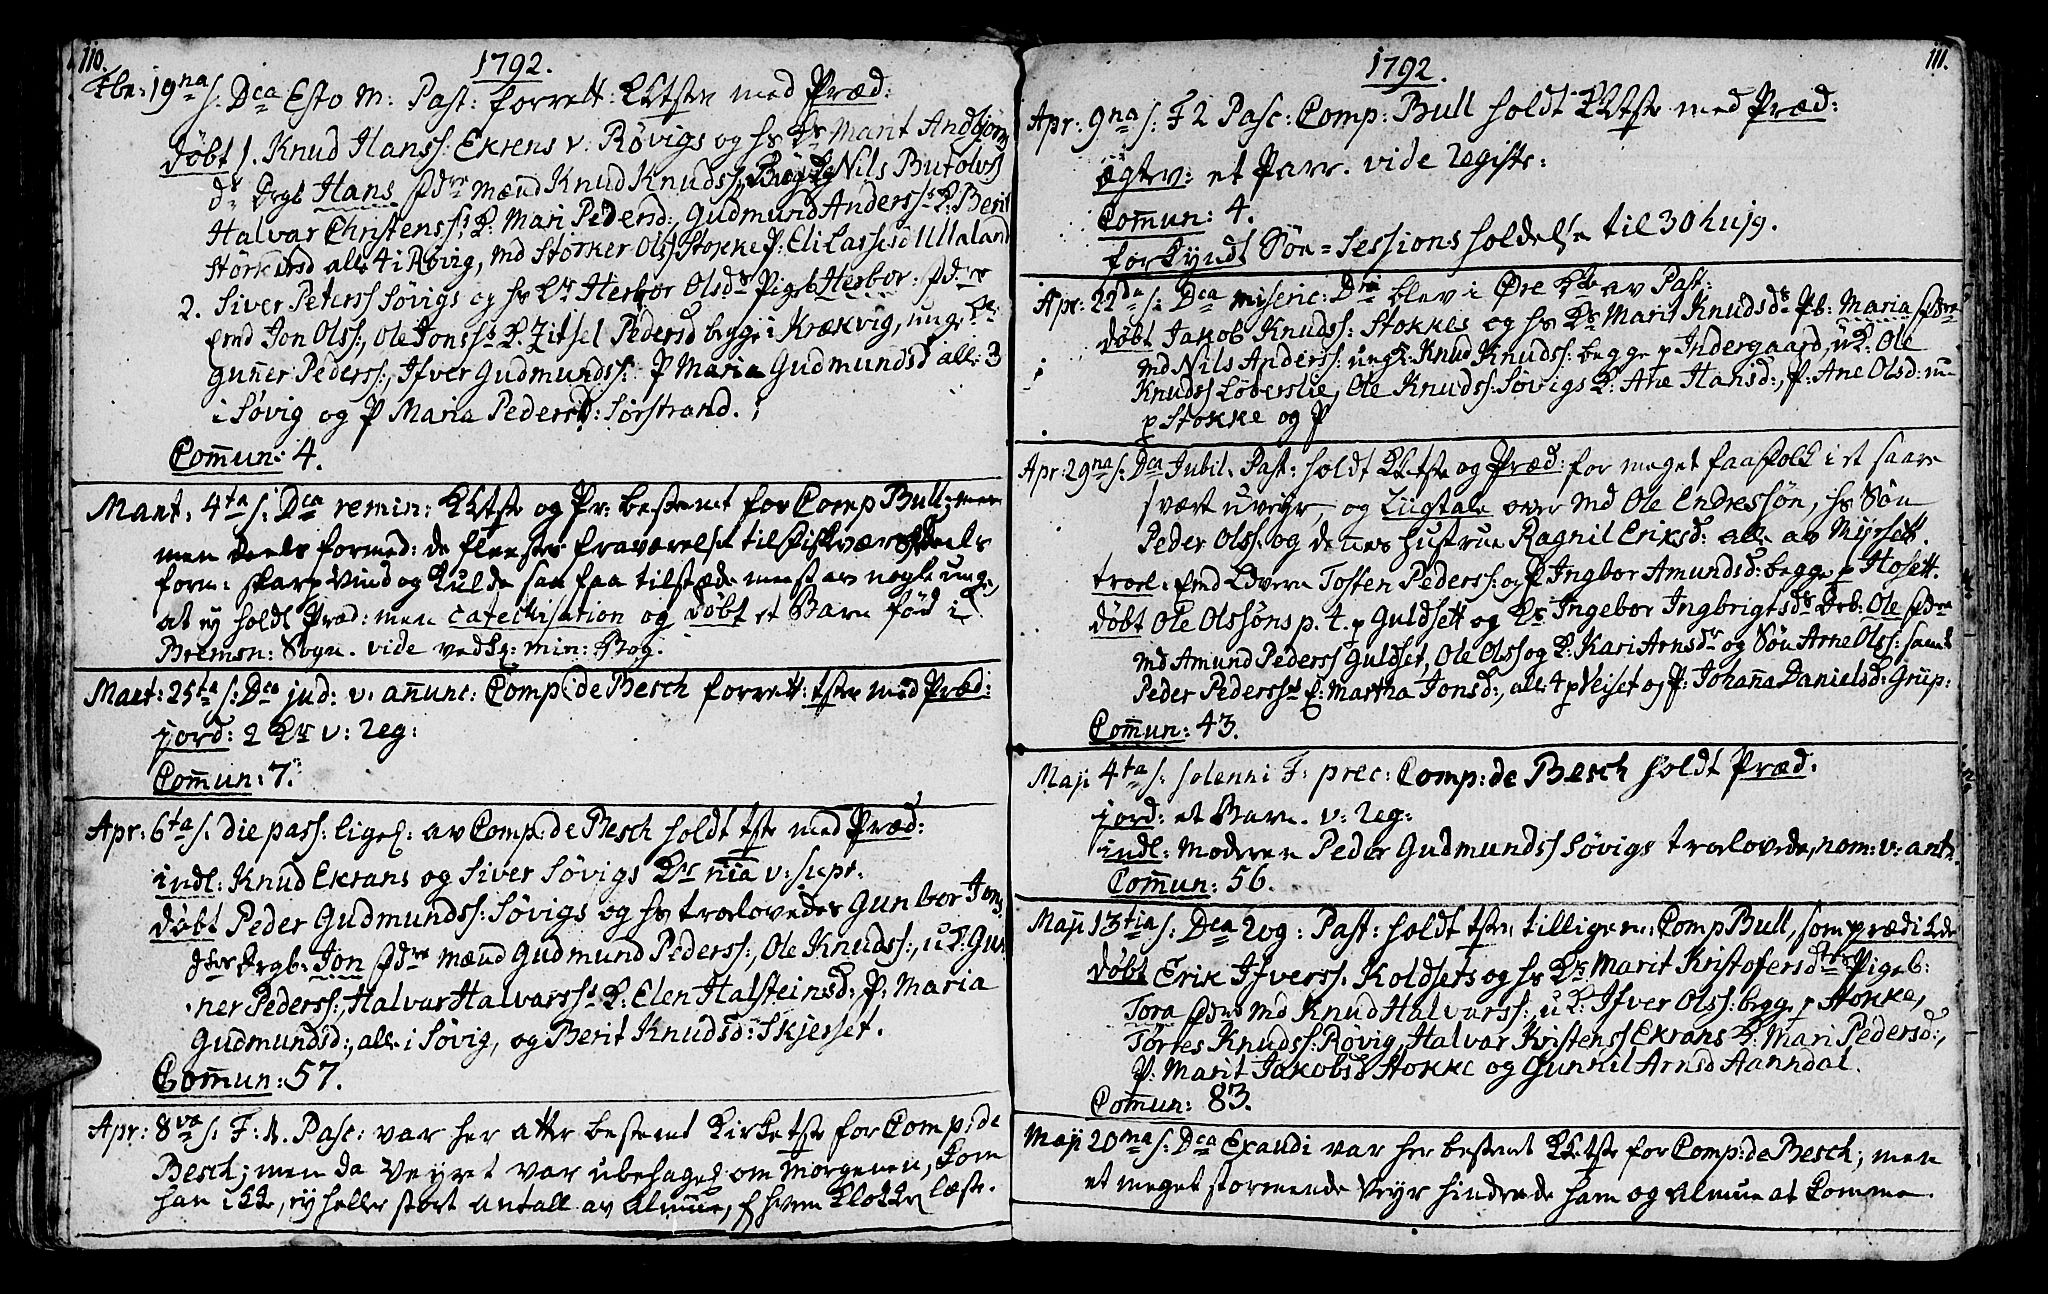 110.
1792.
Febr: 19na s. Dca Esto M: Past: forrett: KKtste med Præd:
døbt 1. Knud Hanss: Ekrens v: Røvigs og hs Kr Marit Andbjørns
dr Drgb Hans fdre mænd Knud Knudss, Nils Butolvss
Halvar Christenss: K: Mari Pedersd:, Gudmund Anderss K: Berit
Størkersd alle 4 i Røvig, md Størker Olss Stokke P: Eli Lassesd Ullaland
2. Siver Peterss Søvigs og hs Kr Herbor Olsdr Pigeb Herbor: fdre
Emd Jon Olss:, Ole Jonss K. Zitsel Pedersd begge i Krækvig, unge Kr
Gunner Pederss:, Ifver Gudmundss: P Maria Gudmundsd alle 3
i Søvig og P Maria Pedersd: Sørstrand.
Com̄un: 4.
Mart: 4ta s: Dca remin: KKtste og Pr: bestemt for Comp Bull;
men deels formed: de fleestes fraværelse til fiskvær deels
form: skarp Vind og Kulde saa faa tilstæde meest av nogle unge,
at ey holdt Præd: men Catechisation og døbt et Barn fød i
Bremsn: Sogn. vide vedk: min: Bog.
Mart: 25ta s: Dca jud: v: an̄unc: Comp: de Besch forrett: tste med Præd:
jord: 2 v: reg:
Com̄un: 7.
Apr: 6ta s: die pass: ligel: av Comp: de Besch holdt tste med Præd:
indl: Knud Ekrans og Siver Søvigs Kr nia v: supr.
døbt Peder Gudmundss: Søvigs og hs trolovedes Gunbor Jons
dtrs Drgb: Jon fdre mænd Gudmund Pederss:, Ole Knudss:, u K: Gun
ner Pederss:, Halvar Halvarss K: Elen Halsteinsd: P: Maria
Gudmundsd:, alle i Søvig, og Berit Knudsd: Skjesset.
Com̄un: 57.
Apr: 8va s: F: 1. Pasc: var her atter bestemt Kirketste for Comp: de
Besch; men da Veyret var ubehagel om Morgenen, kom
han ikke, ey heller stort antall av Almue, Klokken læste.
111.
1792.
Apr: 9na s: F 2 Pasc: Comp: Bull holdt KKtste med Præd:
ægtev: et Parr. vide registr:
Com̄un: 4.
forkyndt Søe=Sessions holdelse til 30 hujg.
Apr: 22da s: Dca miseric: Dni blev i Øre Kke av Past:
døbt Jakob Knudss: Stokkes og hs Kr Marit Knudsdr Pb: Maria fdre
md Nils Anderss: ung K: Knud Knudss: begge p Indergaard, u K: Ole
Knudss Løverslie, Ole Knudss: Søvigs K: Ane Hansd:, P: Ane Olsd:
p Stokke og P
Apr: 29na s: Dca Jubil. Past: holdt KKtste og Præd: for meget faa folk i et saare
svært uveyr, og Liigtale over Md Ole Endressøn, hs Søn
Peder Olss: og den̄es hustrue Ragnil Eriksd: alle av Myrsett.
trol. Emd Edvern Tosten Pederss: og P Ingbor Amundsd: begge p Hosett.
døbt Ole Olssøns p. t. p Guldsett og Kr Ingebor Ingbrigtsdr Drb: Ole fdre
Md Amund Pederss Guldset, Ole Olss og K: Kari Arnsdr og Søn Arne Olss: samt
Peder Pederss K: Martha Jonsd:, alle 4 p Veiset og P: Johan̄a Danielsd: Grip:
Com̄un: 43.
Maji 4ta s: solenni F: prec: Comp: de Besch holdt Præd:
jord: et Barn. v: reg:
indl: Moderen Peder Gudmundss Søvigs trolovede, nom: v: ante.
Com̄un: 56.
Maji 13tia s: Dca rog: Past: holdt tsten tilligem: Comp Bull, som prædikede
døbt Erik Ifverss: Koldsets og hs Kr Marit Kristofersdtrs Pigeb:
Tora fdre Md Knud Halvarss:, u K: Ifver Olss: begge p Stokke,
Torres Knudss: Røvig, Halvar Kristenss Ekrans K: Mari Pedersd:,
P: Marit Jakobsd Stokke og Gunnil Arnsd Aanndal.
Com̄un: 83.
Maji 20ma s: Dca Exaudi var her bestemt KKtste for Comp: de Besch; men
et meget stormende Veyr hindrede ham og Almue at komme.